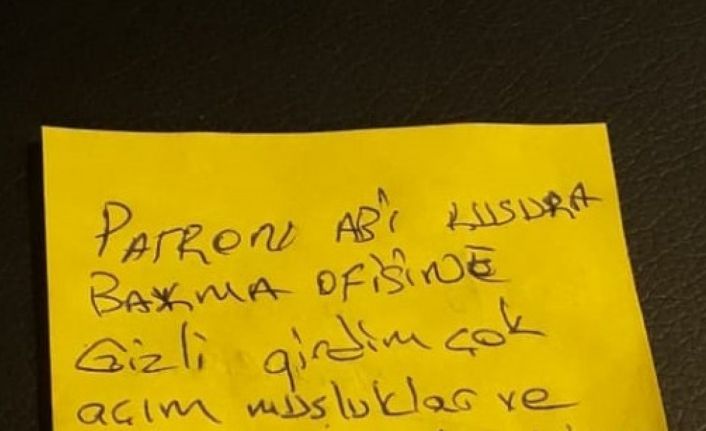 PATRON ABİ KUSURA
BAKMA OFİSİNE
Gizli girdim çok
açım musluklar ve